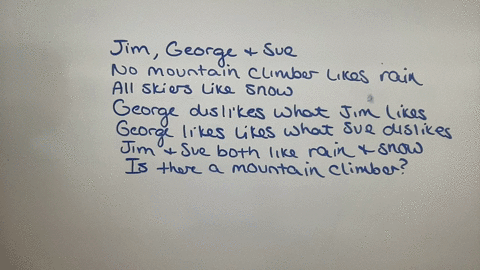 Jim, George + Sue
No mountain climber likes rain
All skiers like snow
George dislikes what Jim likes
George likes likes what Sue dislikes
Jim + Sue both like rain + snow
Is there a mountain climber?